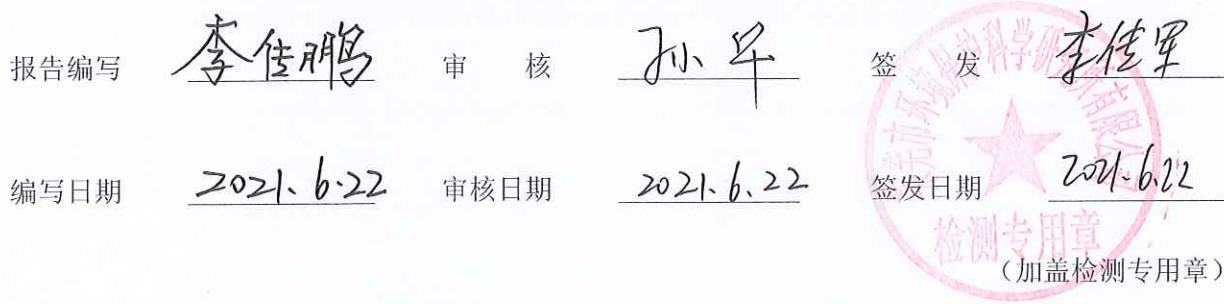 报告编写 李佳鹏 审 核 孙军 签 发 李佳军
编写日期 2021.6.22 审核日期 2021.6.22 签发日期 2021.6.22
检测专用章
（加盖检测专用章）